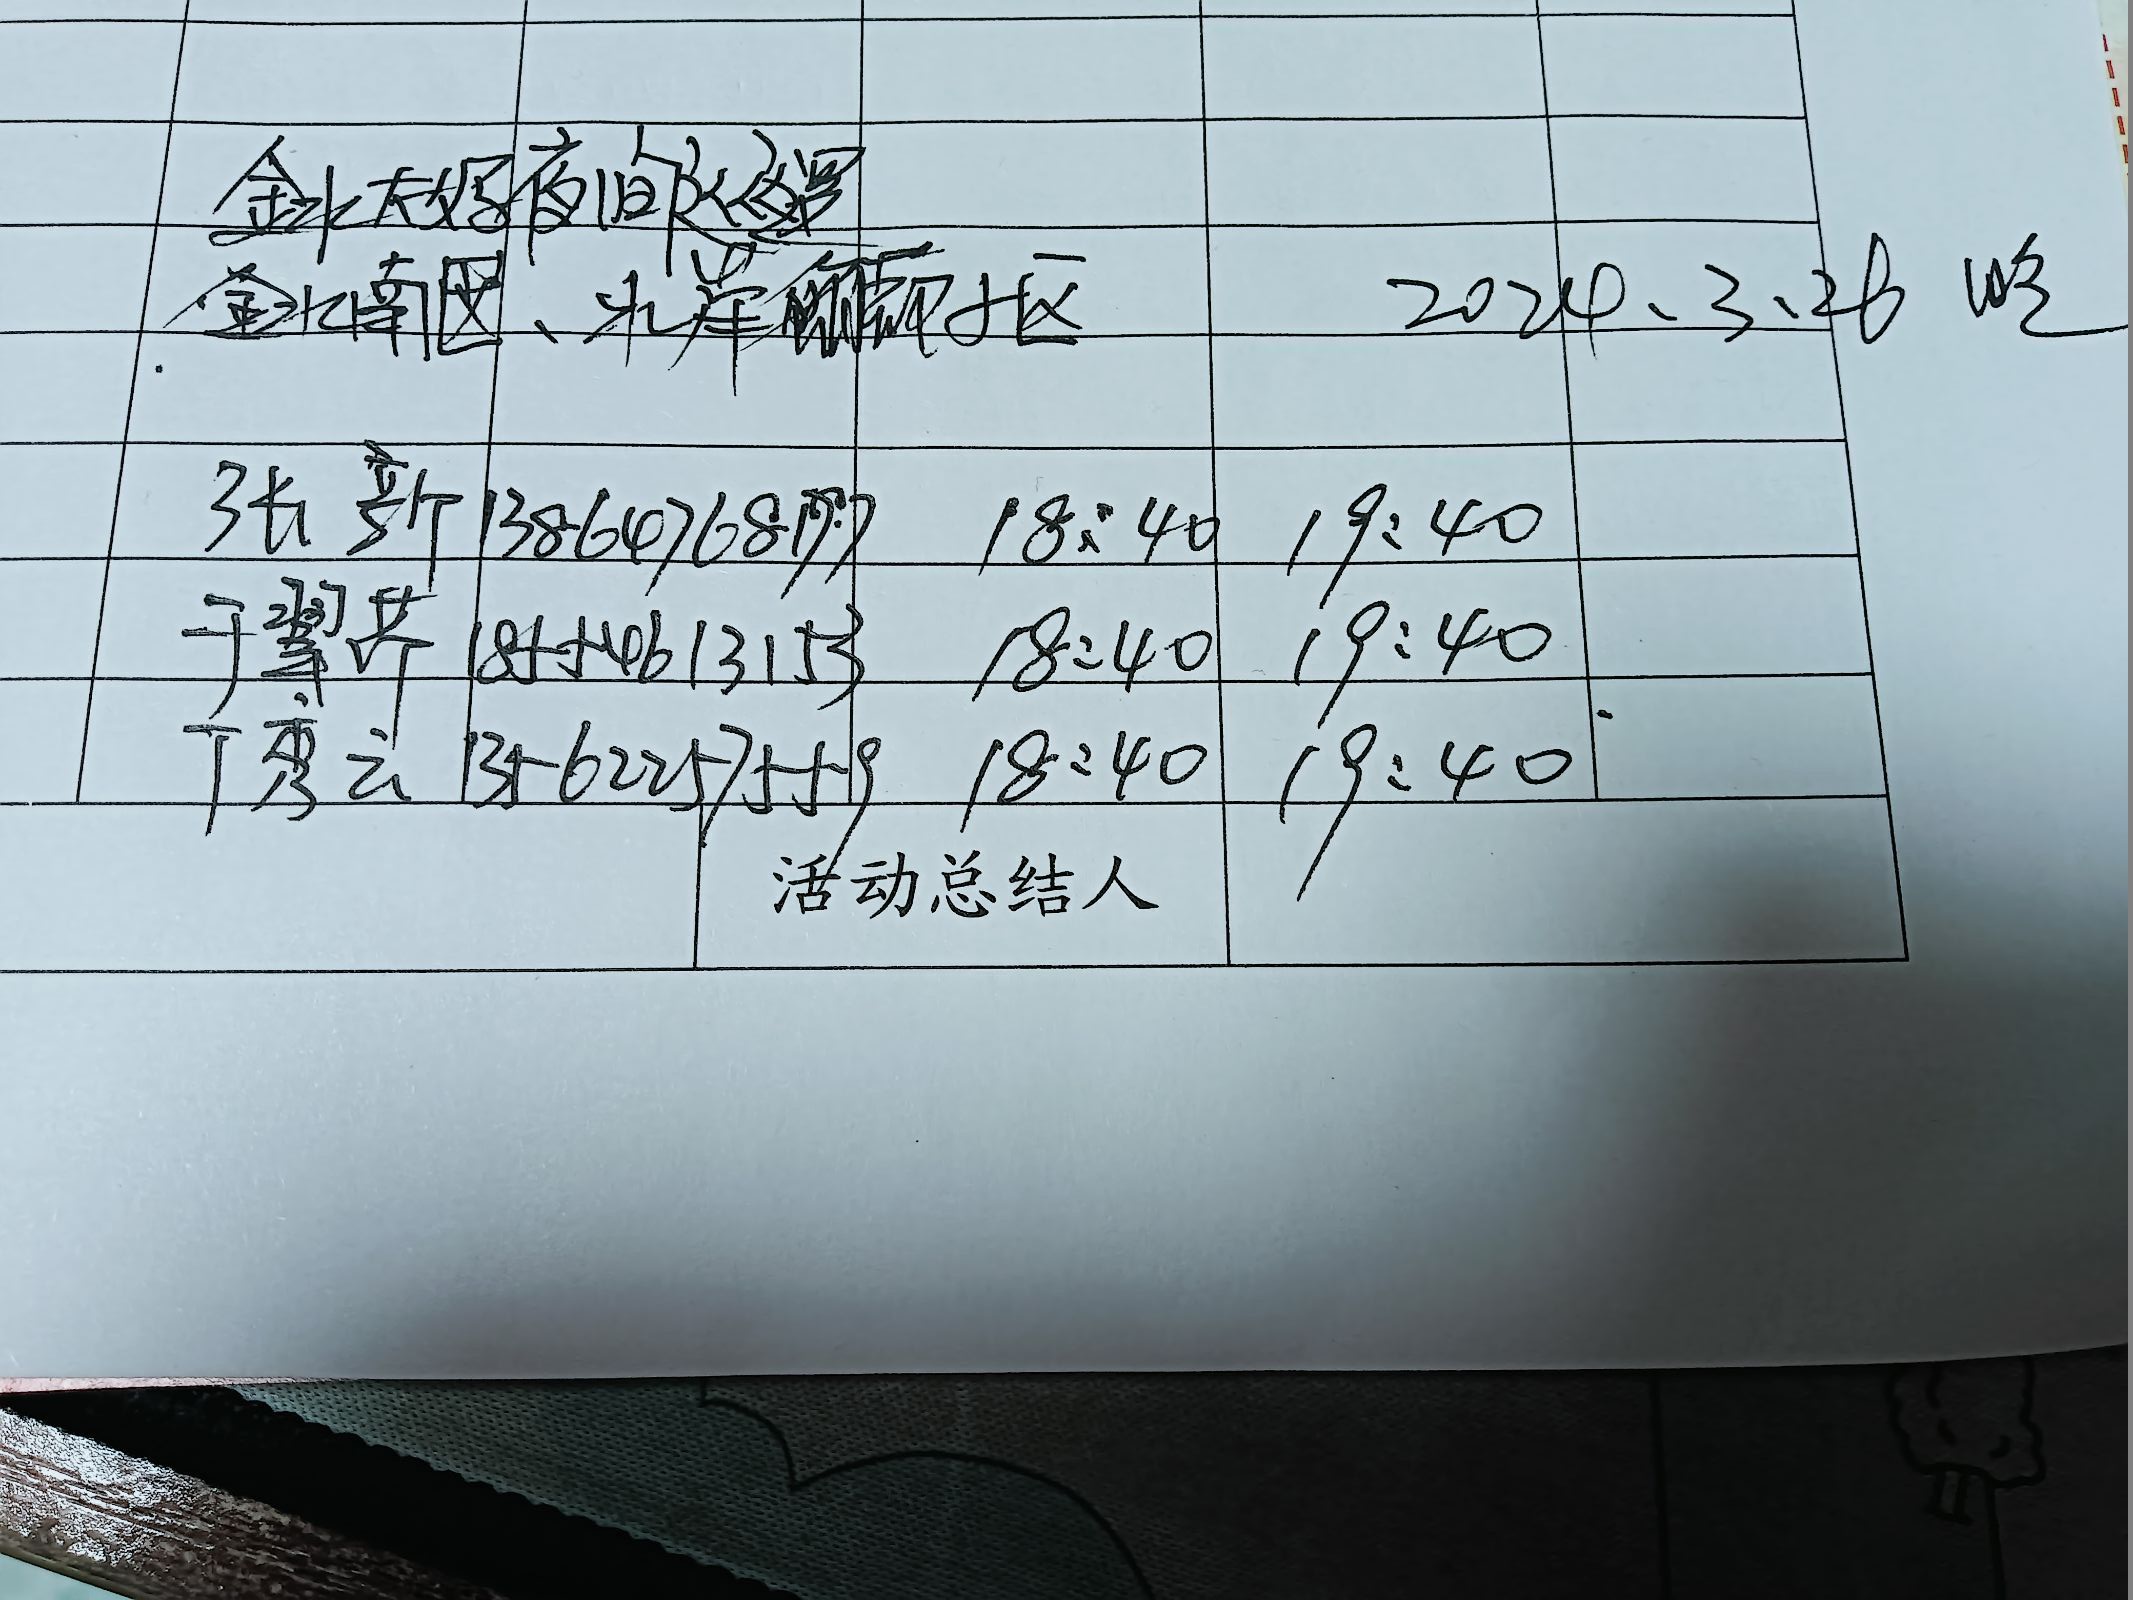 金水大好夜间巡逻
金水南区、水岸小区 2024.3.26 晚
张新 138647687 18:40 19:40
于翠芹 18554613153 18:40 19:40
丁秀云 13562257559 18:40 19:40
活动总结人